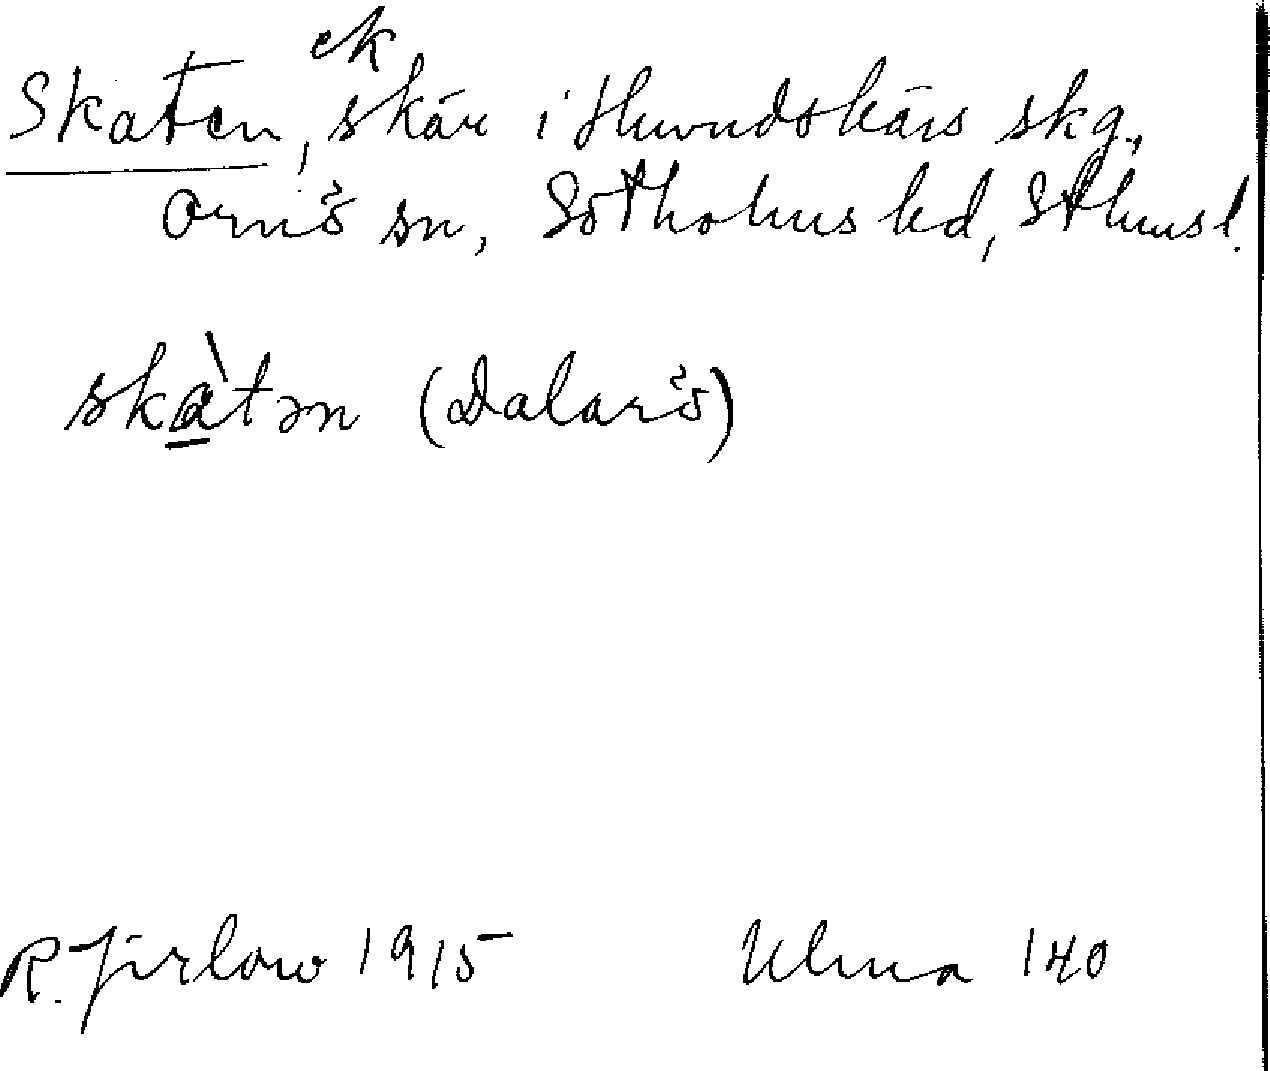 ek
Skaten, skär i Huvudskärs skg.,
Ornö sn, Sotholms hd, Sthmsl.
skàtən (Dalarö)
R. Jirlow 1915 Ulma 140